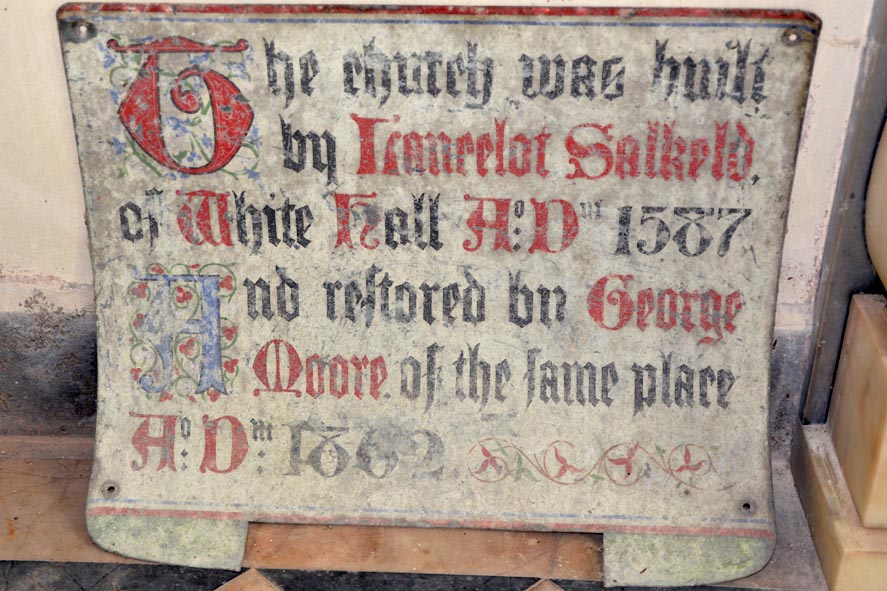 The church was built
by Lancelot Salkeld,
of White Hall Aº: Dm 1587
And restored by George
Moore. of the same place
Aº: Dm: 1862